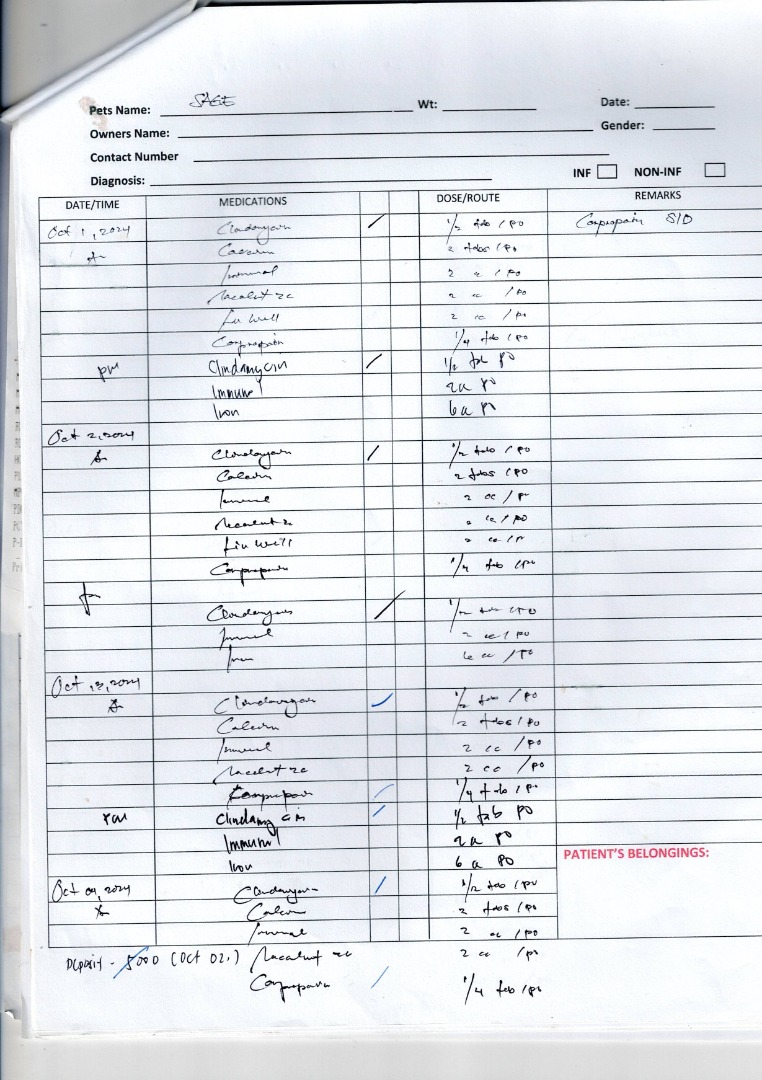 Pets Name: SAGE Wt: Date:
Owners Name: Gender:
Contact Number
Diagnosis: INF NON-INF
DATE/TIME MEDICATIONS DOSE/ROUTE REMARKS
Oct 1, 2024 Clindamycin / 1/2 tab / po
2 tabs / po
Immunol 2 cc / po
2 cc / po
Liv Well 2 cc / po
1/4 tab / po
pm Clindamycin / 1/2 tab po
Immunol 2cc po
Iron 6cc po
Oct 2, 2024
Clindamycin / 1/2 tab / po
2 tabs / po
Immunol 2 cc / po
2 cc / po
Liv Well 2 cc / po
1/4 tab / po
Clindamycin / 1/2 tab / po
Immunol 2 cc / po
Iron 6 cc / po
Oct 3, 2024
Clindamycin 1/2 tab / po
2 tabs / po
Immunol 2 cc / po
2 cc / po
1/4 tab / po
PM Clindamycin 1/2 tab po
Immunol 2cc po
Iron 6cc po
PATIENT'S BELONGINGS:
Oct 04, 2024 Clindamycin / 1/2 tab / po
2 tabs / po
Immunol 2 cc / po
Deposit - 5000 (Oct 02.) 2 cc / po
/ 1/4 tab / po